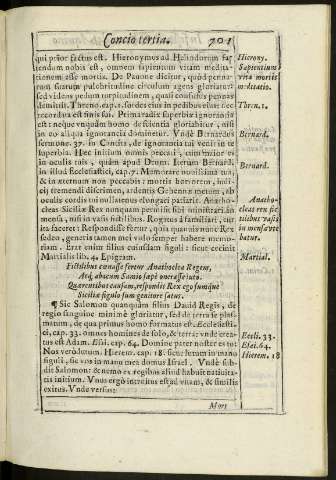 Concio tertia. 701
qui prior factus est. Hieronymus ad Heliodorum sapientum
tendum nobis est, omnem sapientum vitam meditationem
esse mortis. De Pauone dicitur, quòd pennarum
suarum pulchritudine circulum agens gloriatur:
sed videns pedum turpitudinem, quasi confusus pennas
demittit. Thren. cap. 1. sordes eius in pedibus eius: nec
recordata est finis sui. Prima radix superbiæ ignorantia
est: neque unquàm homo de scientia gloriabitur, nisi
in eo aliqua ignorantia dominetur. Vnde Bernardus
sermone. 37. in Cantica, de ignorantia tui venit in te
superbia. Hec initium omnis peccati, cum maior es
in oculis tuis, quàm apud Deum. Iterum Bernard.
in illud Ecclesiastici, cap. 7. Memorare nouissima tua,
& in æternum non peccabis: mortis horrorem,
tremendi discrimen, ardentis Gehennæ metum, ab
oculis cordis tui nullatenus elongari patiaris. Anathocleas
Siciliæ Rex nonquam permisit sibi ministrari
mensa, nisi vasis fictilibus. Rogatus à familiari, cur
ita faceret: Respondisse fertur, quia quamuis nunc Rex
sedeo, generis tamen mei volo semper habere memoriam.
Erat enim filius cuiusdam figuli: sicut cecinit
Martialis lib. 4. Epigram.
Fictilibus cœnasse ferunt Anathoclea Regem,
Atq; abacum Samio sæpè onerasse luto.
Quærenti causam, respondit Rex ego sumque
Siciliæ figulo sum genitore satus.
¶ Sic Salomon quanquàm filius Dauid Regis, de
regio sanguine minimè gloriatur, sed de terra se plasmatum,
de qua primus homo formatus est. Ecclesiastici,
cap. 33. omnes homines de solo, & terra: vnde creatus
est Adam. Esai. cap. 64. Domine pater noster es tu:
Nos verò lutum. Hierem. cap. 18. sicut lutum in manu
figuli, sic vos in manu mea domus Israel. Vnde subdit
Salomon: & nemo ex regibus aliud habuit natiuitatis
initium. Vnus ergò introitus est ad vitam, & similis
exitus. Vnde versus:
Mors
Hierony.
Sapientium
vita mortis
meditatio.
Thren. 1.
Bernard.
Bernard.
Anathocleas
rex fictilibus
vasis
in mensa vtebatur.
Martial.
Eccli. 33.
Esai. 64.
Hierem. 18